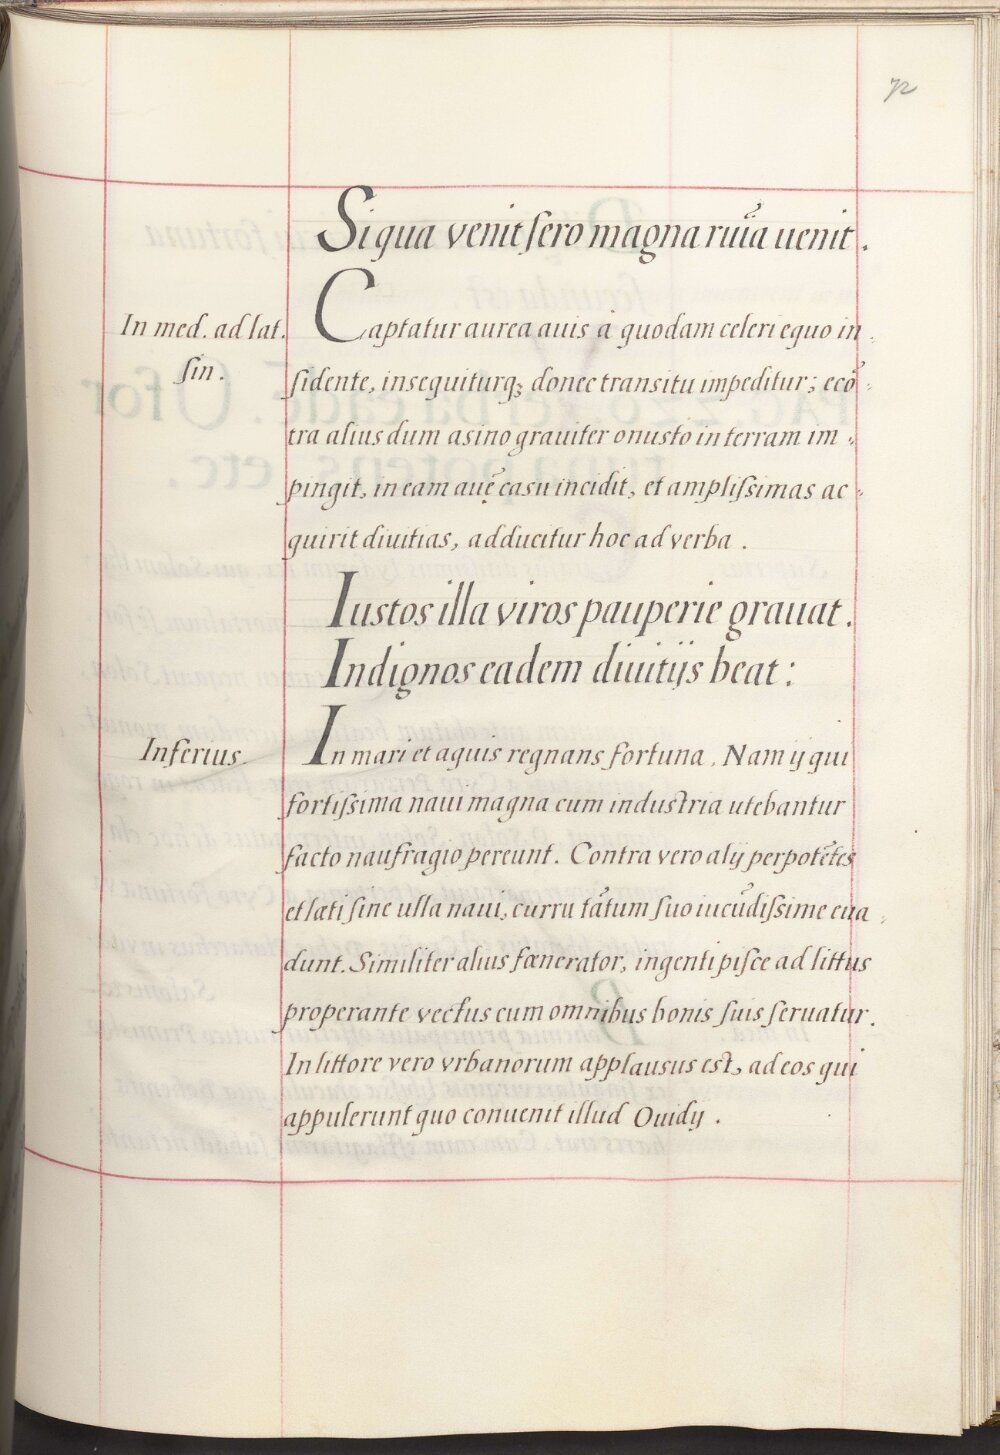 72
Siqua venit sero magna ruı̃a uenit.
In med. ad lat.
sin.
Captatur aurea auis à quodam celeri equo in-
sidente, insequiturq; donec transitu impeditur; ecõ-
tra alius dum asino grauiter onusto in terram im-
pingit, in eam auẽ casu incidit, et amplissimas ac-
quirit diuitias, adducitur hoc ad verba.
Iustos illa viros pauperie grauat.
Indignos eadem diuitijs beat:
Inferius.
In mari et aquis regnans fortuna. Nam ij qui
fortissima naui magna cum industria utebantur
facto naufragio pereunt. Contra vero alij perpotẽtes
et læti sine ulla naui, curru tãtum suo iucũdissime eua-
dunt. Similiter alius fœnerator, ingenti pisce ad littus
properante vectus cum omnibus bonis suis seruatur.
In littore vero vrbanorum applausus est, ad eos qui
appulerunt quo conuenit illud Ouidij.